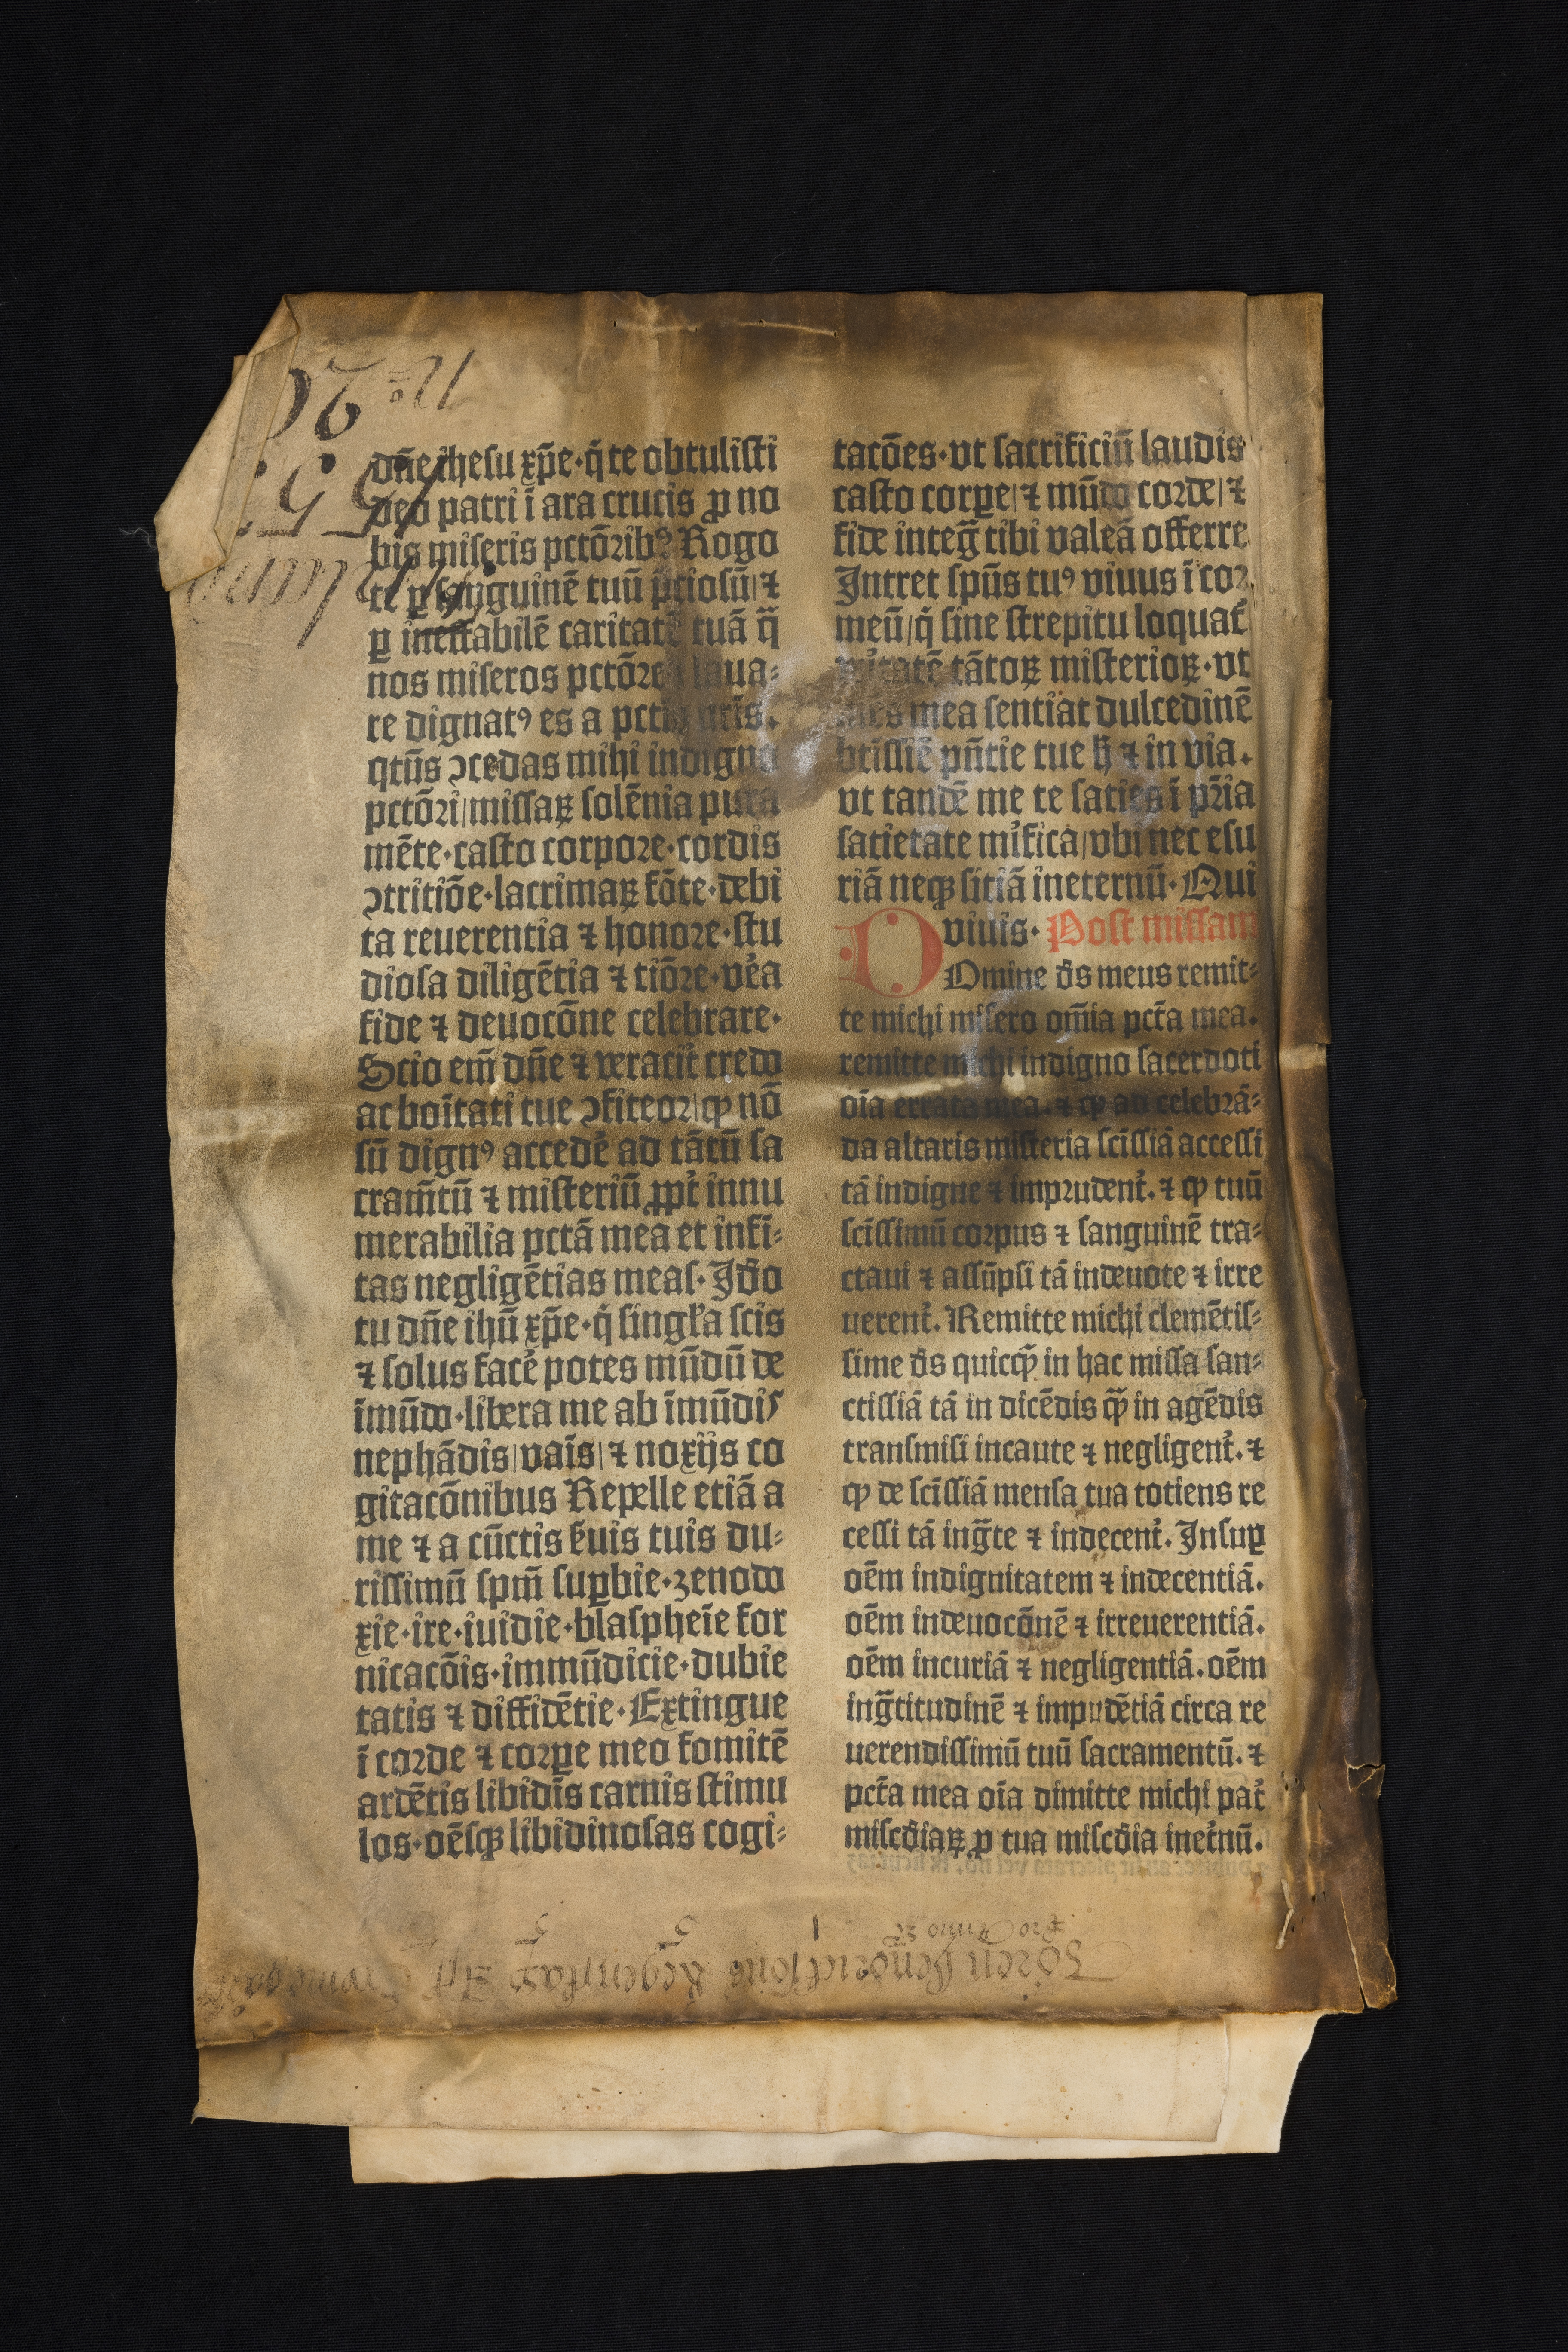 dn̄e ihesu xp̄e·q̄ te obtulisti
deo patri ī ara crucis ꝓ no
bis miseris pctōribꝰ Rogo
te ꝑ sanguinē tuū p̄ciosū/⁊
ꝑ ineffabilē caritatē tuā q̄
nos miseros pctōres laua⸗
re dignatꝰ es a pctīs nr̄is.
qtūs ꝯcedas mihi indigno
pctōri/missaꝝ solēnia pura
mēte·casto corpore·cordis
ꝯtritiōe·lacrimaꝝ fōte·debi
ta reuerentia ⁊ honore·stu
diosa diligētia ⁊ tiōre·ve̓a
fide ⁊ deuocōne celebrare·
Scio em̄ dn̄e ⁊ veracit̓ credo
ac boītati tue ꝯfiteor/ꝙ nō
sū dignꝰ accede̓ ad tātū sa
cram̄tū ⁊ misteriū ꝓpt̓ innu
merabilia pctā mea et infi⸗
tas negligētias meas·Ido̓
tu dn̄e ihū xp̄e·q̄ singĺa scis
⁊ solus face̓ potes mūdū de
īmūdo·libera me ab īmūdis
nephādis/vaīs/⁊ noxijs co
gitacōnibus Repelle etiā a
me ⁊ a cūctis s̓uis tuis du⸗
rissimū spm̄ suꝑbie·zenodo
xie·ire·iuidie·blaspheīe for
nicacōis·immūdicie·dubie
tatis ⁊ diffidētie·Extingue
ī corde ⁊ corꝑe meo fomitē
ardētis libidīs carnis stimu
los·oēsqꝫ libidinosas cogi⸗
tacōes·vt sacrificiū laudis
casto corꝑe/⁊ mūdo corde/⁊
fide integ̃ tibi valeā offerre
Intret spūs tuꝰ viuus ī cor
meū/q̄ sine strepitu loquat̓
v̓itatē tātoꝝ misterioꝝ·vt
mēs mea sentiat dulcedinē
btissīe pn̄tie tue h̄ ⁊ in via.
vt tandē me te saties ī pr̄ia
satietate mi̓fica/vbi nec esu
riā neqꝫ sitiā ineternū·Qui
viuis· Post missam
DOmine ds̄ meus remit⸗
te michi misero om̄ia pctā mea.
remitte michi indigno sacerdoti
oīa errata mea. ⁊ ꝙ ad celebrā⸗
da altaris misteria scīssiā accessi
tā indigne ⁊ imprudent̓. ⁊ ꝙ tuū
scīssimū corpus ⁊ sanguinē tra⸗
ctaui ⁊ assūpsi tā indeuote ⁊ irre
uerent̓. Remitte michi clemētis⸗
sime ds̄ quicꝙ̄ in hac missa san⸗
ctissiā tā in dicēdis ꝙ̄ in agēdis
transmisi incaute ⁊ negligent̓. ⁊
ꝙ de scīssiā mensa tua totiens re
cessi tā ing̃te ⁊ indecent̓. Insuꝑ
oēm indignitatem ⁊ indecentiā.
oēm indeuocōnē ⁊ irreuerentiā.
oēm incuriā ⁊ negligentiā. oēm
ing̃titudinē ⁊ impudētiā circa re
uerendissimū tuū sacramentū. ⁊
pctā mea oīa dimitte michi pat̓
misc̄diaꝝ ꝓ tua misc̄dia inet̓nū.